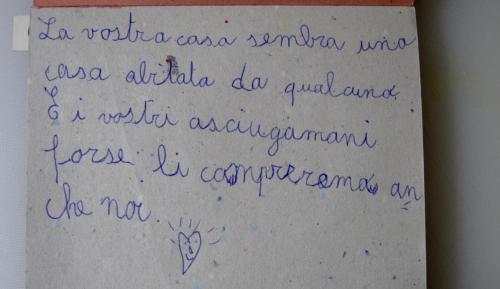 La vostra casa sembra una
casa abitata da qualcuno.
E i vostri asciugamani
forse li compreremo an
che noi.